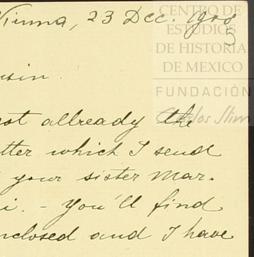 Vienna, 23 Dec. 1900
CENTRO DE
ESTUDIOS
DE HISTORIA
DE MEXICO
FUNDACIÓN
Carlos Slim
usin.
ost allready the
tter which I send
your sister Mar-
i. - You'll find
nclosed and I have